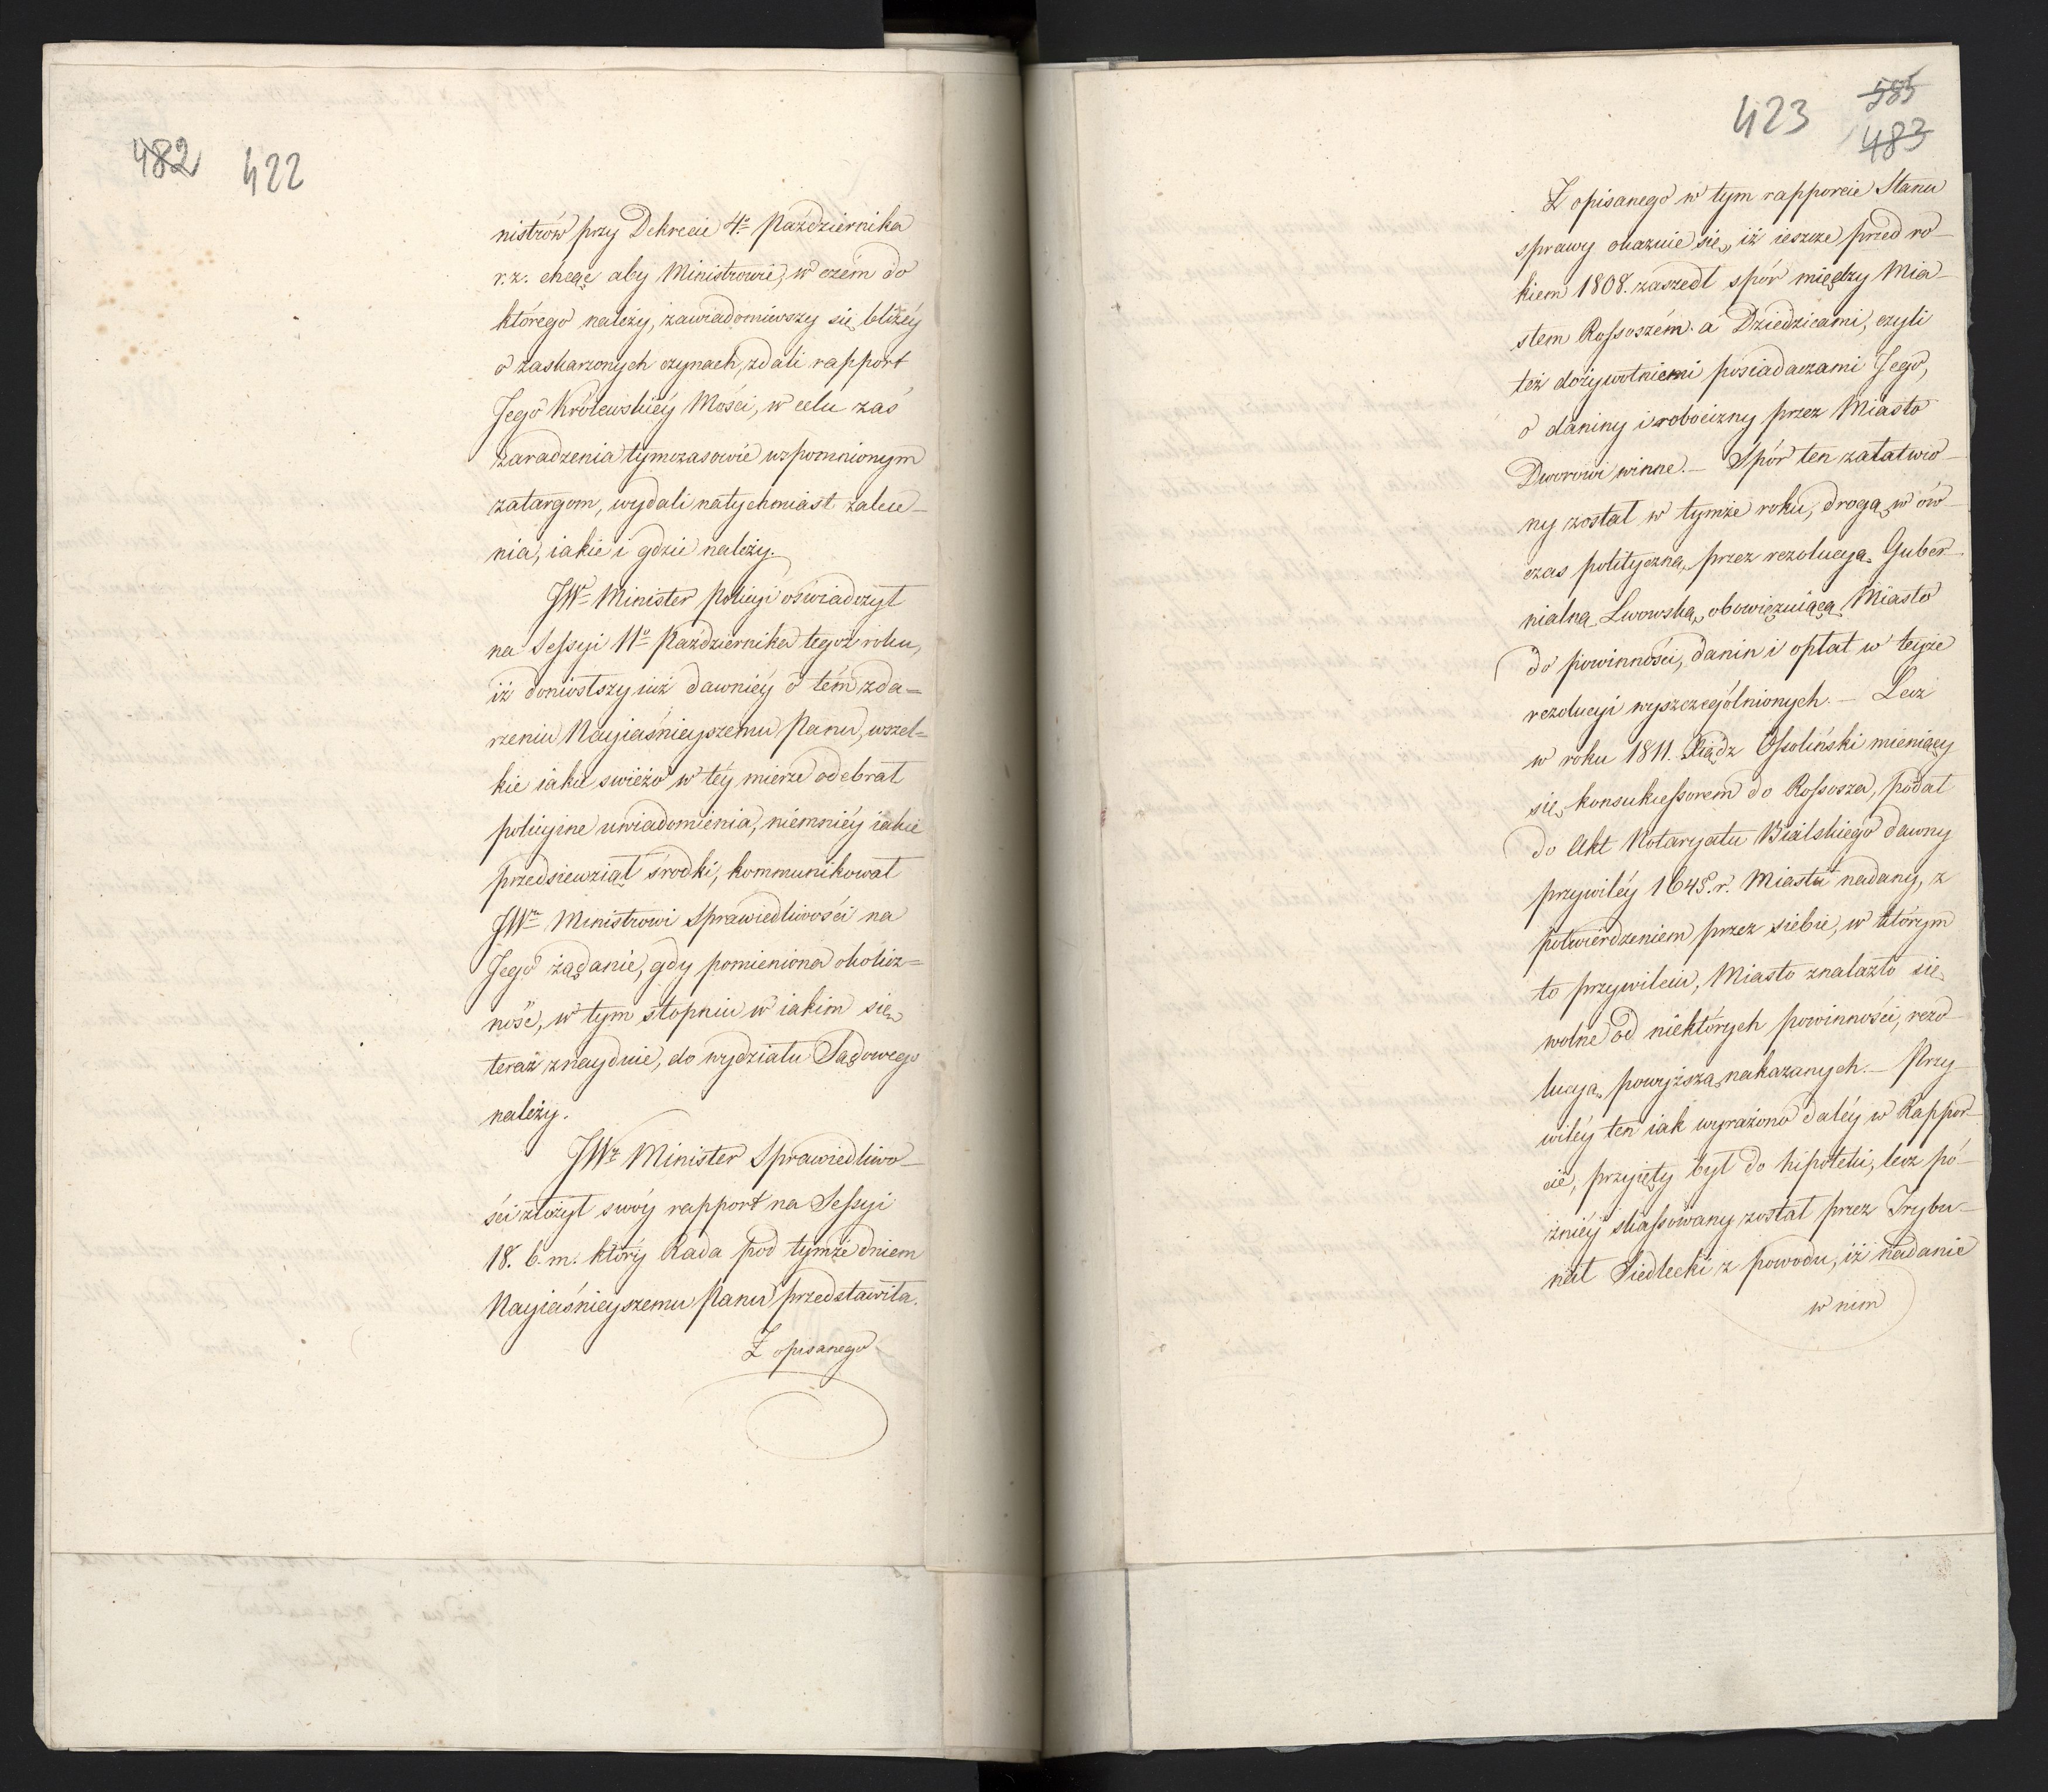 482 422
nistrów przy Dekrecie 4º Października
r. z. chcąc aby Ministrowie, w czém do
którego należy, zawiadomiwszy się bliżéy
o zaskarzonych czynach, zdali rapport
Jego Królewskiéy Mości, w celu zaś
zaradzenia tymczasowie wspomnionym
zatargom, wydali natychmiast zalece-
nia, iakie i gdzie należy.
JWº Minister Policyi oświadczył
na Sessyi 11º Października tegoż roku,
iż doniosłszy iuż dawniéy o tém zda=
rzeniu Nayiaśnieyszemu Panu, wszel=
kie iakie swieżo w téy mierze odebrał
policyine uwiadomienia, niemniéy iakie
przedsiewziął środki, kommunikował
JWmu Ministrowi Sprawiedliwości na
Jego żądanie, gdy pomieniona okolicz=
ność, w tym stopniu w iakim się
teraz znayduie, do wydziału Sądowego
należy.
JWº Minister Sprawiedliwo-
ści złożył swóy rapport na Sessyi
18. b. m. który Rada pod tymże dniem
Nayiaśnieyszemu Panu przedstawiła.
Z opisanego
423 585
483
Z opisanego w tym rapporcie Stanu
sprawy okazuie się, iż ieszcze przed ro-
kiem 1808. zaszedł spór między Mia-
stem Rossoszém a Dziedzicami, czyli
też dożywotniemi posiadaczami Jego,
o daniny i robocizny przez Miasto
Dworowi winne. – Spór ten załatwio-
ny został w tymże roku, drogą w ów-
czas polityczną, przez rezolucyą Guber-
nialną Lwowską, obowięzuiącą Miasto
do powinności, danin i opłat w teyże
rezolucyi wyszczególnionych. – Lecz
w roku 1811. Xiądz Ossoliński mieniący
się konsukcessorem do Rossosza, podał
do Akt Notaryatu Bialskiego dawny
przywiléy 1648. r. Miastu nadany, z
potwierdzeniem przez siebie, w którym
to przywileiu, Miasto znalazło się
wolne od niektórych powinności, rezo-
lucyą powyższą nakazanych. – Przy-
wiléy ten iak wyrażono daléy w Rappor-
cie, przyięty był do hipoteki, lecz pó-
źniéy skassowany został przez Trybu-
nał Siedlecki z powodu, iż nadanie
w nim